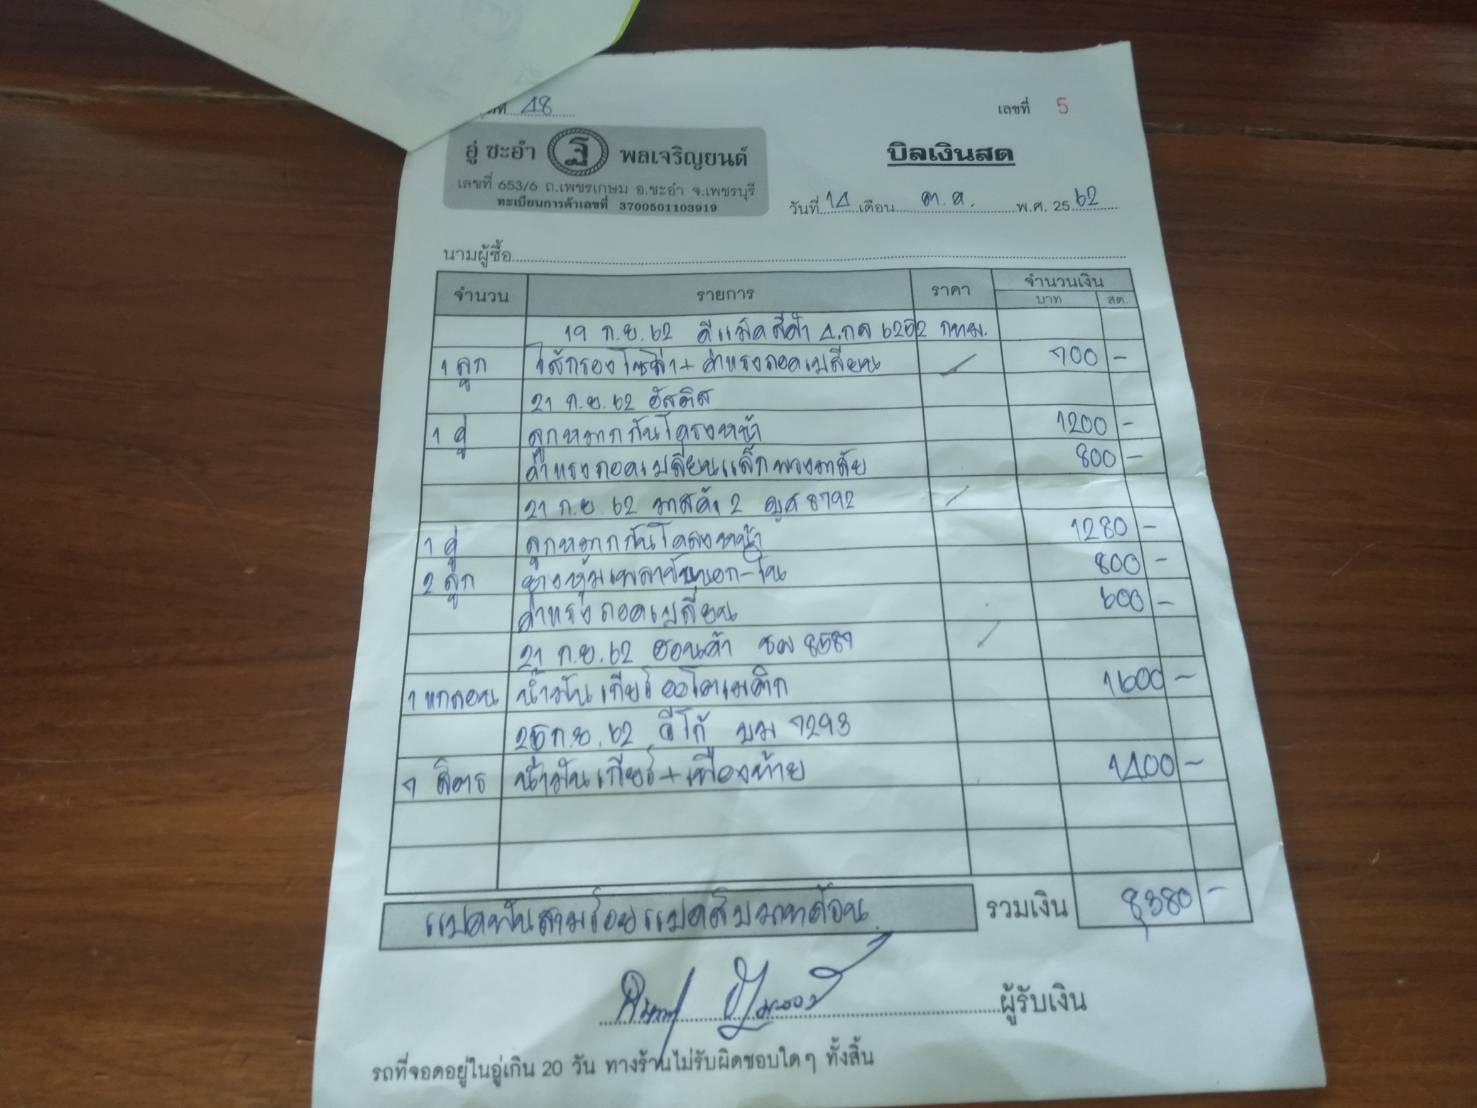 18 เลขที่ 5
อู่ ชะอำ ฐ พลเจริญยนต์ บิลเงินสด
เลขที่ 653/6 ถ.เพชรเกษม อ.ชะอำ จ.เพชรบุรี
ทะเบียนการค้าเลขที่ 3700501103919
วันที่ 14 เดือน ต.ค. พ.ศ. 2562
นามผู้ซื้อ
จำนวน รายการ ราคา จำนวนเงิน
บาท สต.
19 ก.ย. 62 ดีแม็คสีฟ้า กทม.
1 ลูก ไส้กรองโซล่า+ค่าแรงถอดเปลี่ยน 700 -
21 ก.ย. 62
1 คู่ ลูกหมากกันโคลงหน้า 1200 -
ค่าแรงถอดเปลี่ยนแร็คพวงมาลัย 800 -
21 ก.ย. 62 มาสด้า 2 8792
1 คู่ ลูกหมากกันโคลงหน้า 1280 -
2 ลูก ยางหุ้มเพลาขับนอก-ใน 800 -
ค่าแรงถอดเปลี่ยน 600 -
21 ก.ย. 62 ฮอนด้า 8589
1 แกลลอน น้ำมันเกียร์ออโตเมติก 1600 -
25 ก.ย. 62 วีโก้ บม 7293
7 ลิตร น้ำมันเกียร์+เฟืองท้าย 1400 -
แปดพันสามร้อยแปดสิบบาทถ้วน รวมเงิน 8380 -
ผู้รับเงิน
รถที่จอดอยู่ในอู่เกิน 20 วัน ทางร้านไม่รับผิดชอบใดๆ ทั้งสิ้น